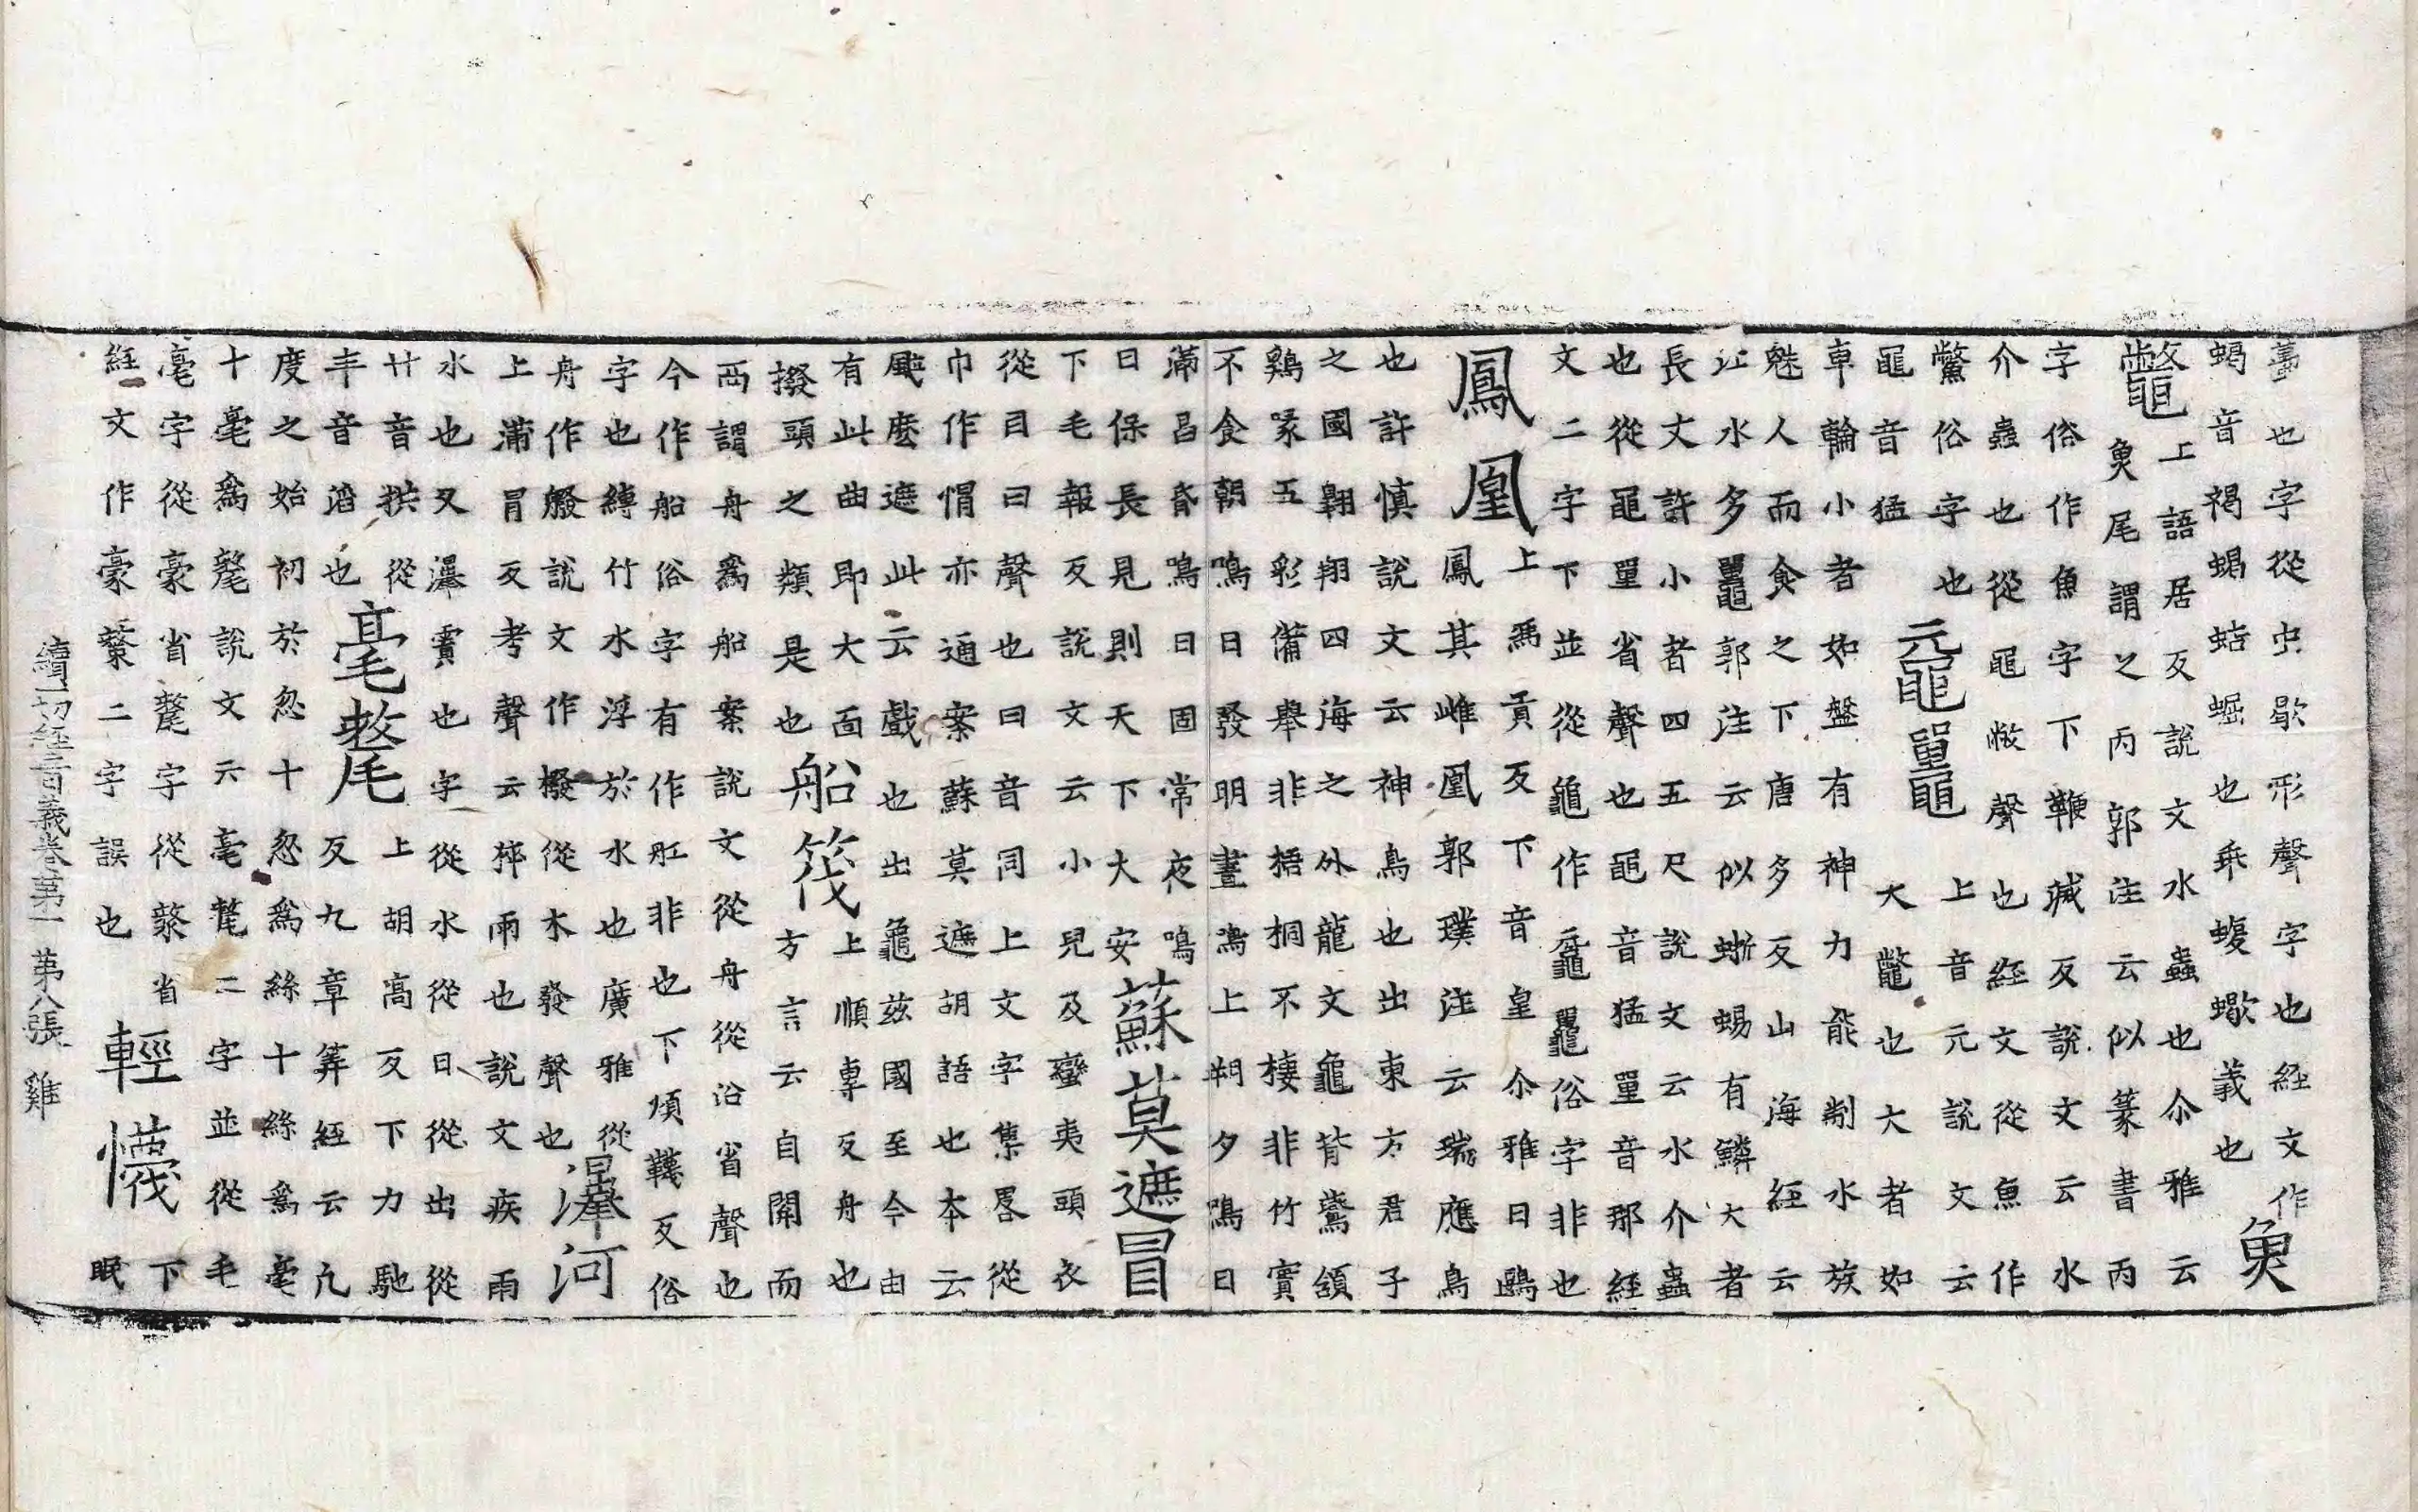 蠆也字從虫歇形聲字也經文作
蝎音褐蝎蛣蝠也乖蝮蠍義也
𩵋鼈
上語居反說文水蟲也尒雅云
𩵋尾謂之丙郭注云似篆書丙
字俗作魚字下鞭滅反說文云水
介蟲也從黽敝聲也經文從魚作
鱉俗字也
黽音猛
黿鼉
上音元說文云
大鼈也大者如
車輪小者如盤有神力能制水族
魅人而食之下唐多反山海經云
江水多鼉郭注云似蜥蜴有鱗大者
長丈許小者四五尺說文云水介蟲
也從黽單省聲也黽音猛單音那經
文二字下並從龜作俗字非也
鳳凰
上馮貢反下音皇尒雅曰鶠
鳳其雌凰郭璞注云瑞應鳥
也許慎說文云神鳥也出東方君子
之國翱翔四海之外龍文龜背鷰頷
鷄喙五彩備舉非梧桐不棲非竹實
不食朝鳴曰發明晝鳴上朔夕鳴曰
滿昌昏鳴曰固常夜鳴
曰保長見則天下大安
蘇莫遮冒
下毛報反說文云小兒及蠻夷頭衣
從冃曰聲也曰音同上文字集畧從
巾作㡌亦通案蘇莫遮胡語也本云
颯麼遮此云戲也出龜兹國至今由
有此曲即大面
撥頭之類是也
船筏
上順専反舟也
方言云自關而
西謂舟為船案說文從舟從沿省聲也
今作船俗字有作舡非也下煩韈反俗
字也縛竹水浮於水也廣雅從
舟作說文作橃從木發聲也
瀑河
上蒲冒反考聲云猝雨也說文疾雨
水也又瀑霣也字從水從日從出從
廾音拱從
丰音滔也
毫氂
上胡高反下力馳
反九章筭經云凡
度之始初於忽十忽為絲十絲為毫
十毫為氂說文云毫氂二字並從毛
毫字從豪省氂字從𠩺省
經文作豪二字誤也
輕懱
下
眠
續一切經音義卷第一 第八張 雞